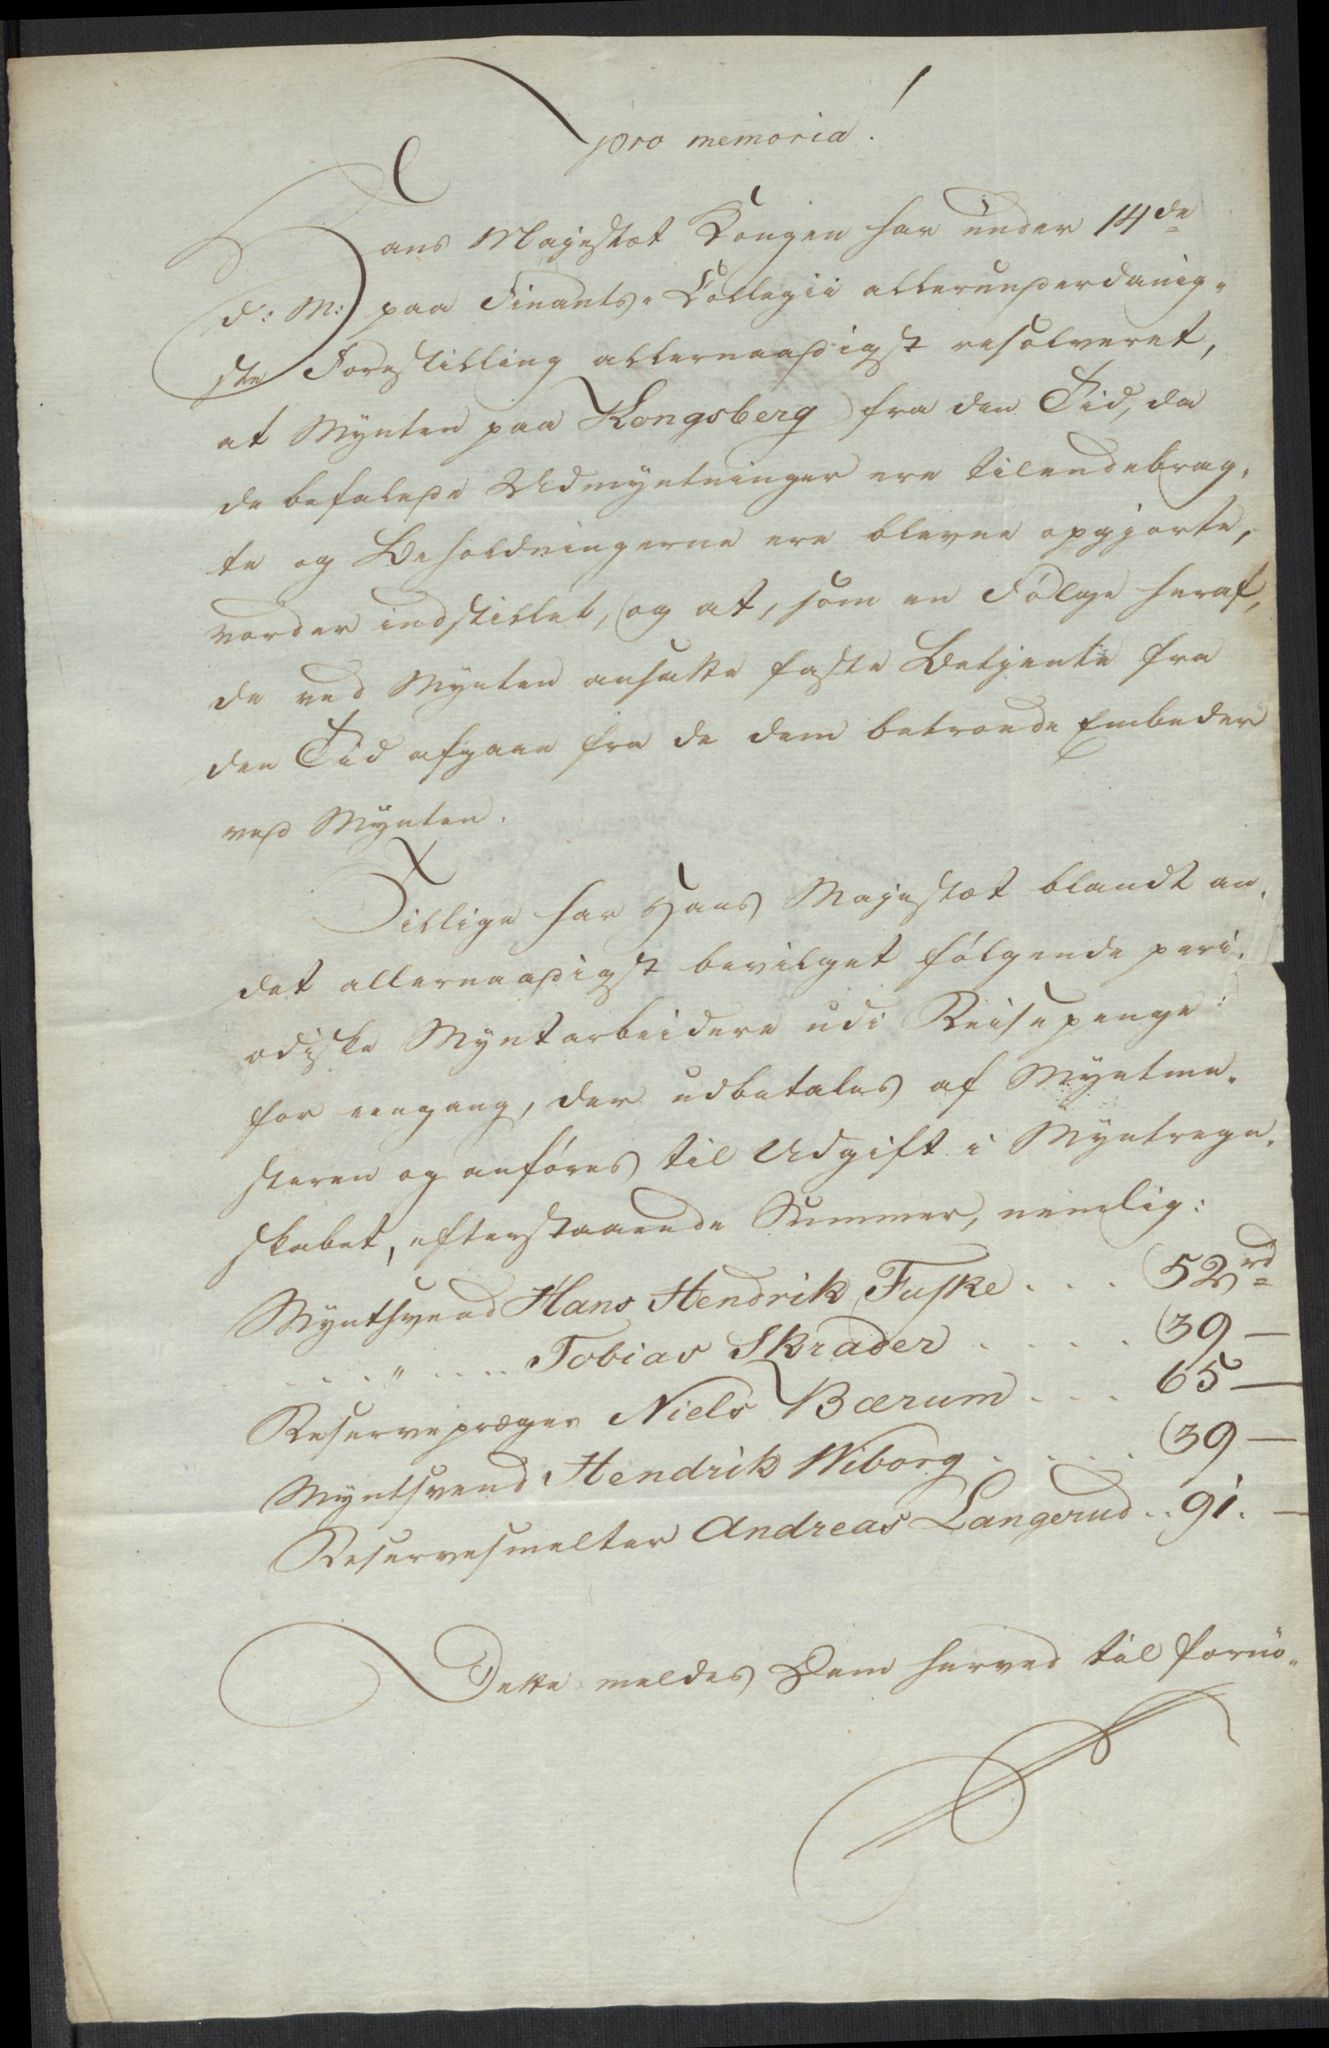 pro memoria!
Hans Majestæt Kongen har under 14de
d: M: paa Finants-Collegii allerunderdanig-
ste Forestilling allernaadigst resolveret,
at Mynten paa Kongsberg fra den Tid, da
de befalede Udmyntninger ere tilendebrag-
te og Beholdningerne ere blevne opgjorte,
vorder indstillet, og at, som en Følge heraf,
de ved Mynten ansatte faste Betjente fra
den Tid afgaae fra de dem betroede Embeder
ved Mynten.
Tillige har Hans Majestæt blandt an-
det allernaadigst bevilget følgende peri-
odiske Myntarbeidere udi Reisepenge
for eengang, der udbetales af Myntme-
steren og anføres til Udgift i Myntregn-
skabet, efterstaaende Summer, nemlig:
Myntsvend Hans Hendrik Fuske . . . 52 rd
. . . . " . . . . Tobias Skrader . . . . . 39 —
Reservepræger Niels Bærum . . . 65 —
Myntsvend Hendrik Wiborg . . . . . 39 —
Reservesmelter Andreas Langerud . . 91. —
Dette meldes Dem herved til fornö-